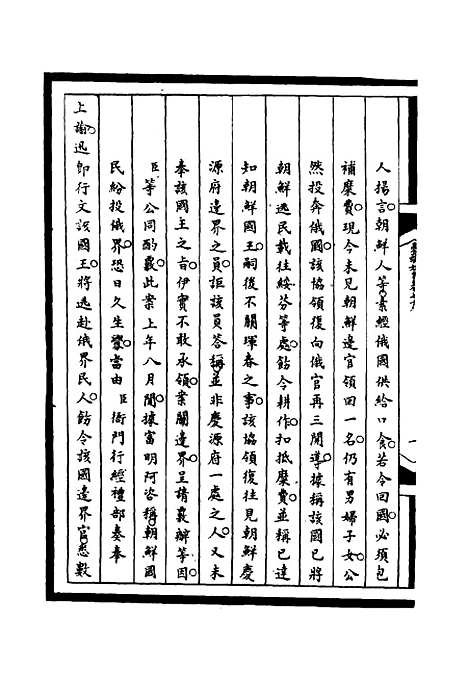 人揚言。朝鮮人等。素經俄國供給口食。若令回國。必須包
補糜費。現今未見朝鮮邊官領回一名。仍有男婦子女。公
然投奔俄國。該協領復向俄官再三開導。據稱該國已將
朝鮮逃民載往綏芬等處。飭令耕作。扣抵糜費。並稱已達
知朝鮮國王。嗣後不關琿春之事。該協領復往見朝鮮慶
源府邊界之員。詎該員答稱。並非慶源府一處之人。又未
奉該國王之旨。伊實不敢承領。案關邊界。呈請覈辦等因。
臣等公同酌覈。此案上年八月間。據富明阿咨稱。朝鮮國
民紛投俄界。恐日久生釁。當由臣衙門行經禮部奏奉
上諭。迅即行文該國王。將逃赴俄界民人。飭令該國邊界官悉數